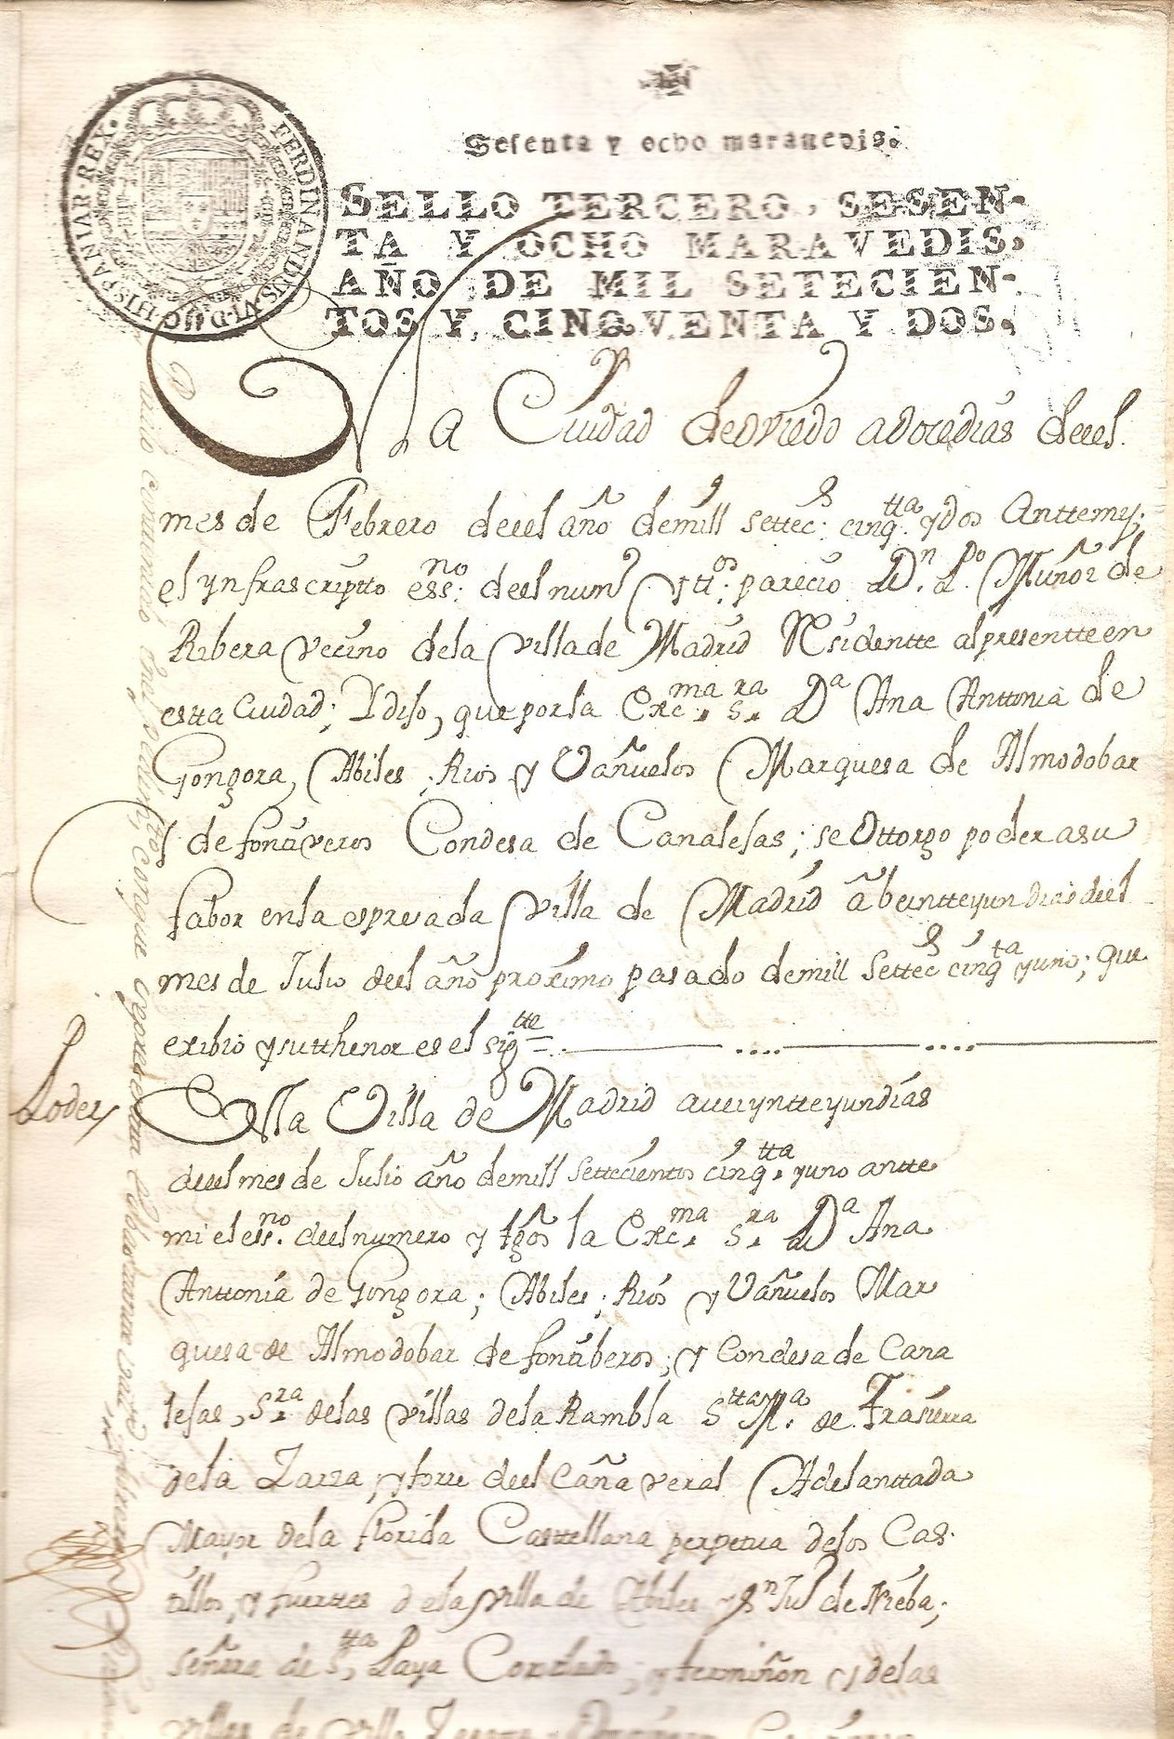 Sesenta y ocho maravedis.
FERDINANDUS.VI.D.G.HISPANIAR.REX.
SELLO TERCERO, SESEN-
TA Y OCHO MARAVEDIS,
AÑO DE MIL SETECIEN-
TOS Y CINQVENTA Y DOS.
En la Ciudad deoviedo adocedias deel
mes de Febrero deel año demill settec.s cinq.tta ydos Anttemy,
el ynfrascriptto ess.no deel num.o y tt.os parecio D.n P.do Muñoz de
Ribera Vecino dela Villa de Madrid Residentte alpresentteen
estta Ciudad; Ydijo, que por la Exc.ma s.ra D.a Ana Anttonia de
Gongora, Abiles, Rios y Vañuelos Marquesa de Almodobar
de fontiveros Condesa de Canalejas; se Ottorgo poder asu
fabor enla espresada Villa de Madrid â beintteyun dias deel
mes de Julio deel año proximo pasado demill settec.s cinq.ta yuno; que
exibio ysutthenor es el sig.tte
Poder
En la Villa de Madrid aveiyntteyundias
deel mes de Julio año demill settecientos cinq.tta yuno antte
mi el ess.no deel numero y tgos la Exc.ma s.ra D.a Ana
Anttonia de Gongora; Abiles; Rios y Vañuelos Mar
quesa de Almodobar de fontiberos; y Condesa de Cana
lejas, s.ra delas Villas dela Rambla s.tta M.a de Trasierra
dela Zarza, y torre deel Cañaveral Adelanttada
Mayor dela florida Casttellana perpetua delos Cas-
tillos, y fuerttes dela Villa de Abiles y S.n Ju.n de Nieba;
señora de s.tta Paya y termiñon y delas
Villas de Villa